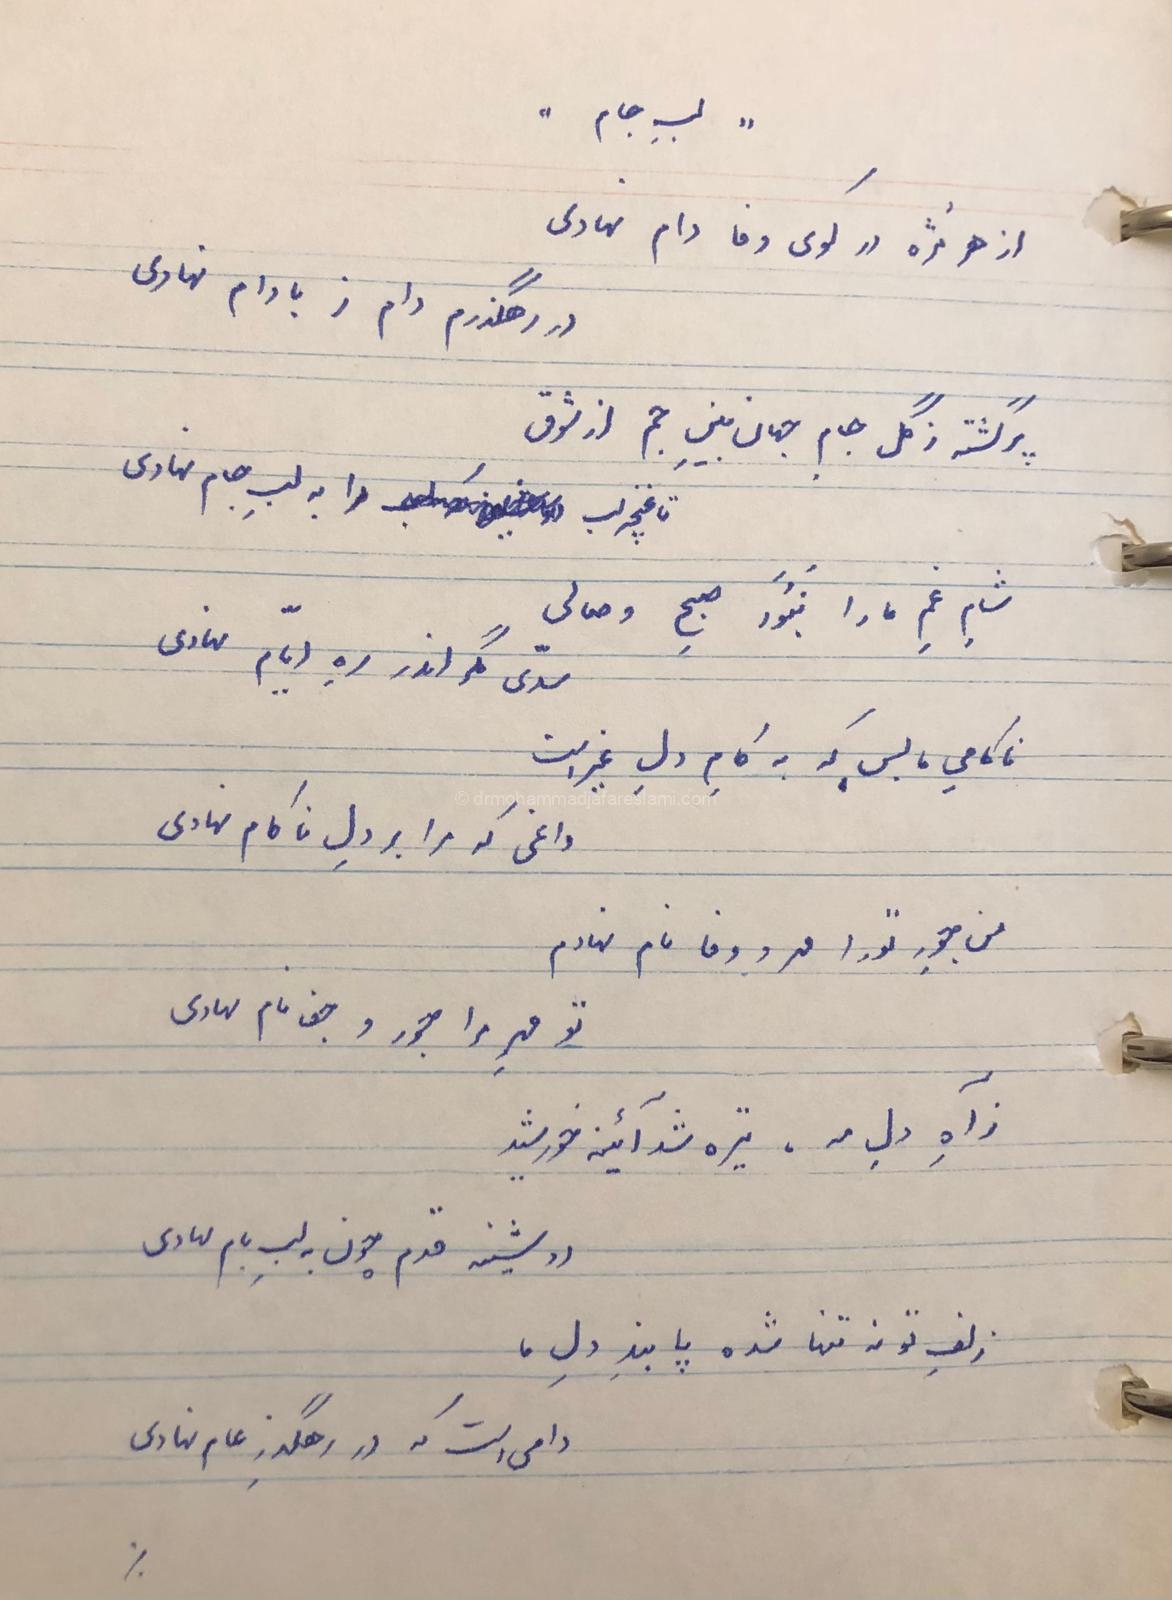 " لبِ جام "
از هر مُژه در کوی وفا دام نهادی
در رهگذرم دام ز بادام نهادی
پر گشته ز گل جامِ جهان‌بینِ جم از شوق
تا غنچه لب مرا به لبِ جام نهادی
شامِ غمِ ما را نَبُوَد صبحِ وصالی
سدّی مگر اندر رهِ ایّام نهادی
ناکامیِ ما بس که به کامِ دلِ غیر است
© drmohammadjafareslami.com
داغی که مرا بر دلِ ناکام نهادی
من جورِ تو را مهر و وفا نام نهادم
تو مهرِ مرا جور و جفا نام نهادی
ز آهِ دلِ مه ، تیره شد آئینه خورشید
دوشینه قدم چون به لبِ بام نهادی
زلفِ تو نه تنها شده پابندِ دلِ ما
دامی است که در رهگذرِ عام نهادی